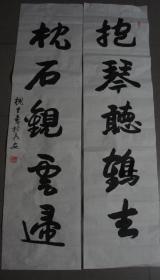 抱琴聽鶴去
枕石觀雲歸